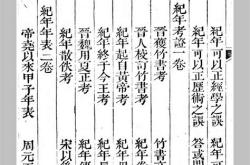 紀年可以正經學之誤
紀年可以正歷術之誤 答或問
紀年考證一卷
晉獲竹書考 竹書
晉人校竹書考 紀年
紀年起自黃帝考 紀年
紀年終于今王考 紀年
晉魏用夏正考 紀年
紀年散佚考 宋以
紀年年表二卷
帝堯以來甲子年表 周元